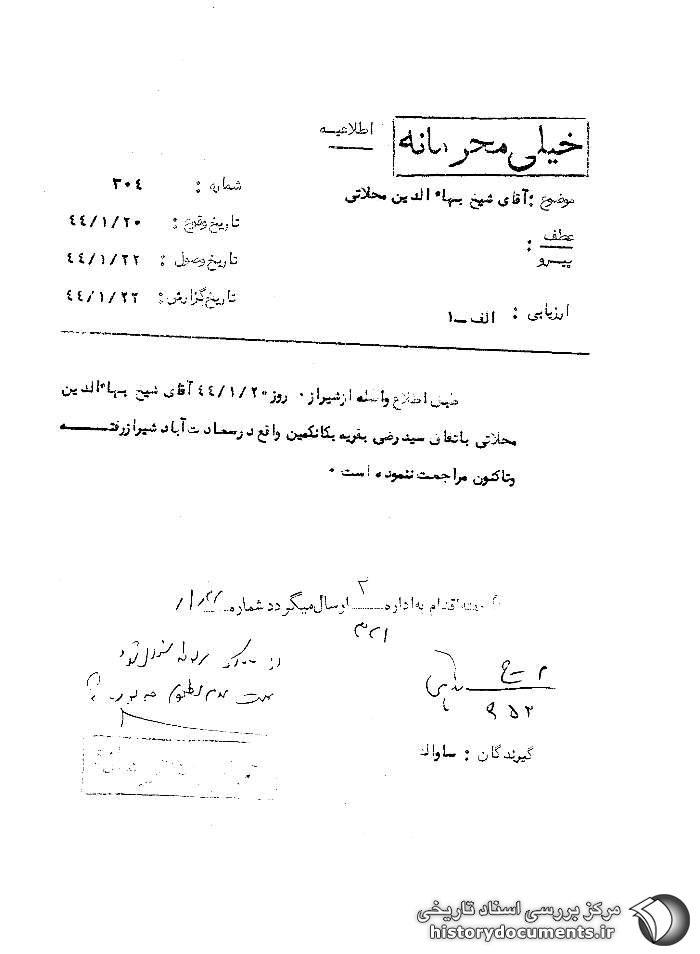 اطلاعیه
خیلی محرمانه
موضوع : آقای شیخ بهاء الدین محلاتی
شماره : ۳۰۴
عطف
پیرو :
تاریخ وقوع : ۴۴/۱/۲۰
تاریخ وصول : ۴۴/۱/۲۲
تاریخ گزارش : ۴۴/۱/۲۲
ارزیابی : الف ـ ۱
طبق اطلاع واصله از شیراز . روز ۴۴/۱/۲۰ آقای شیخ بهاء الدین
محلاتی باتفاق سید رضی بقریه بکانکمین واقع در سعادت آباد شیراز رفتـــه
و تاکنون مراجعت ننموده است .
اقدام به اداره ۲ ارسال میگردد شماره
۳۲۱
از
۲ - ج
۹۵۲
گیرندگان : ساواک
مرکز بررسی اسناد تاریخی
historydocuments.ir